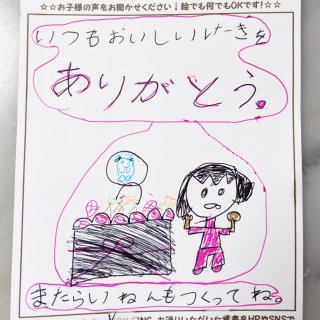 ☆☆お子様の声をお聞かせください↓絵でも何でもOKです!☆☆
いつもおいしいけーきを
ありがとう。
またらいねんもつくってね。
お送りいただいた
をHPやSNSで